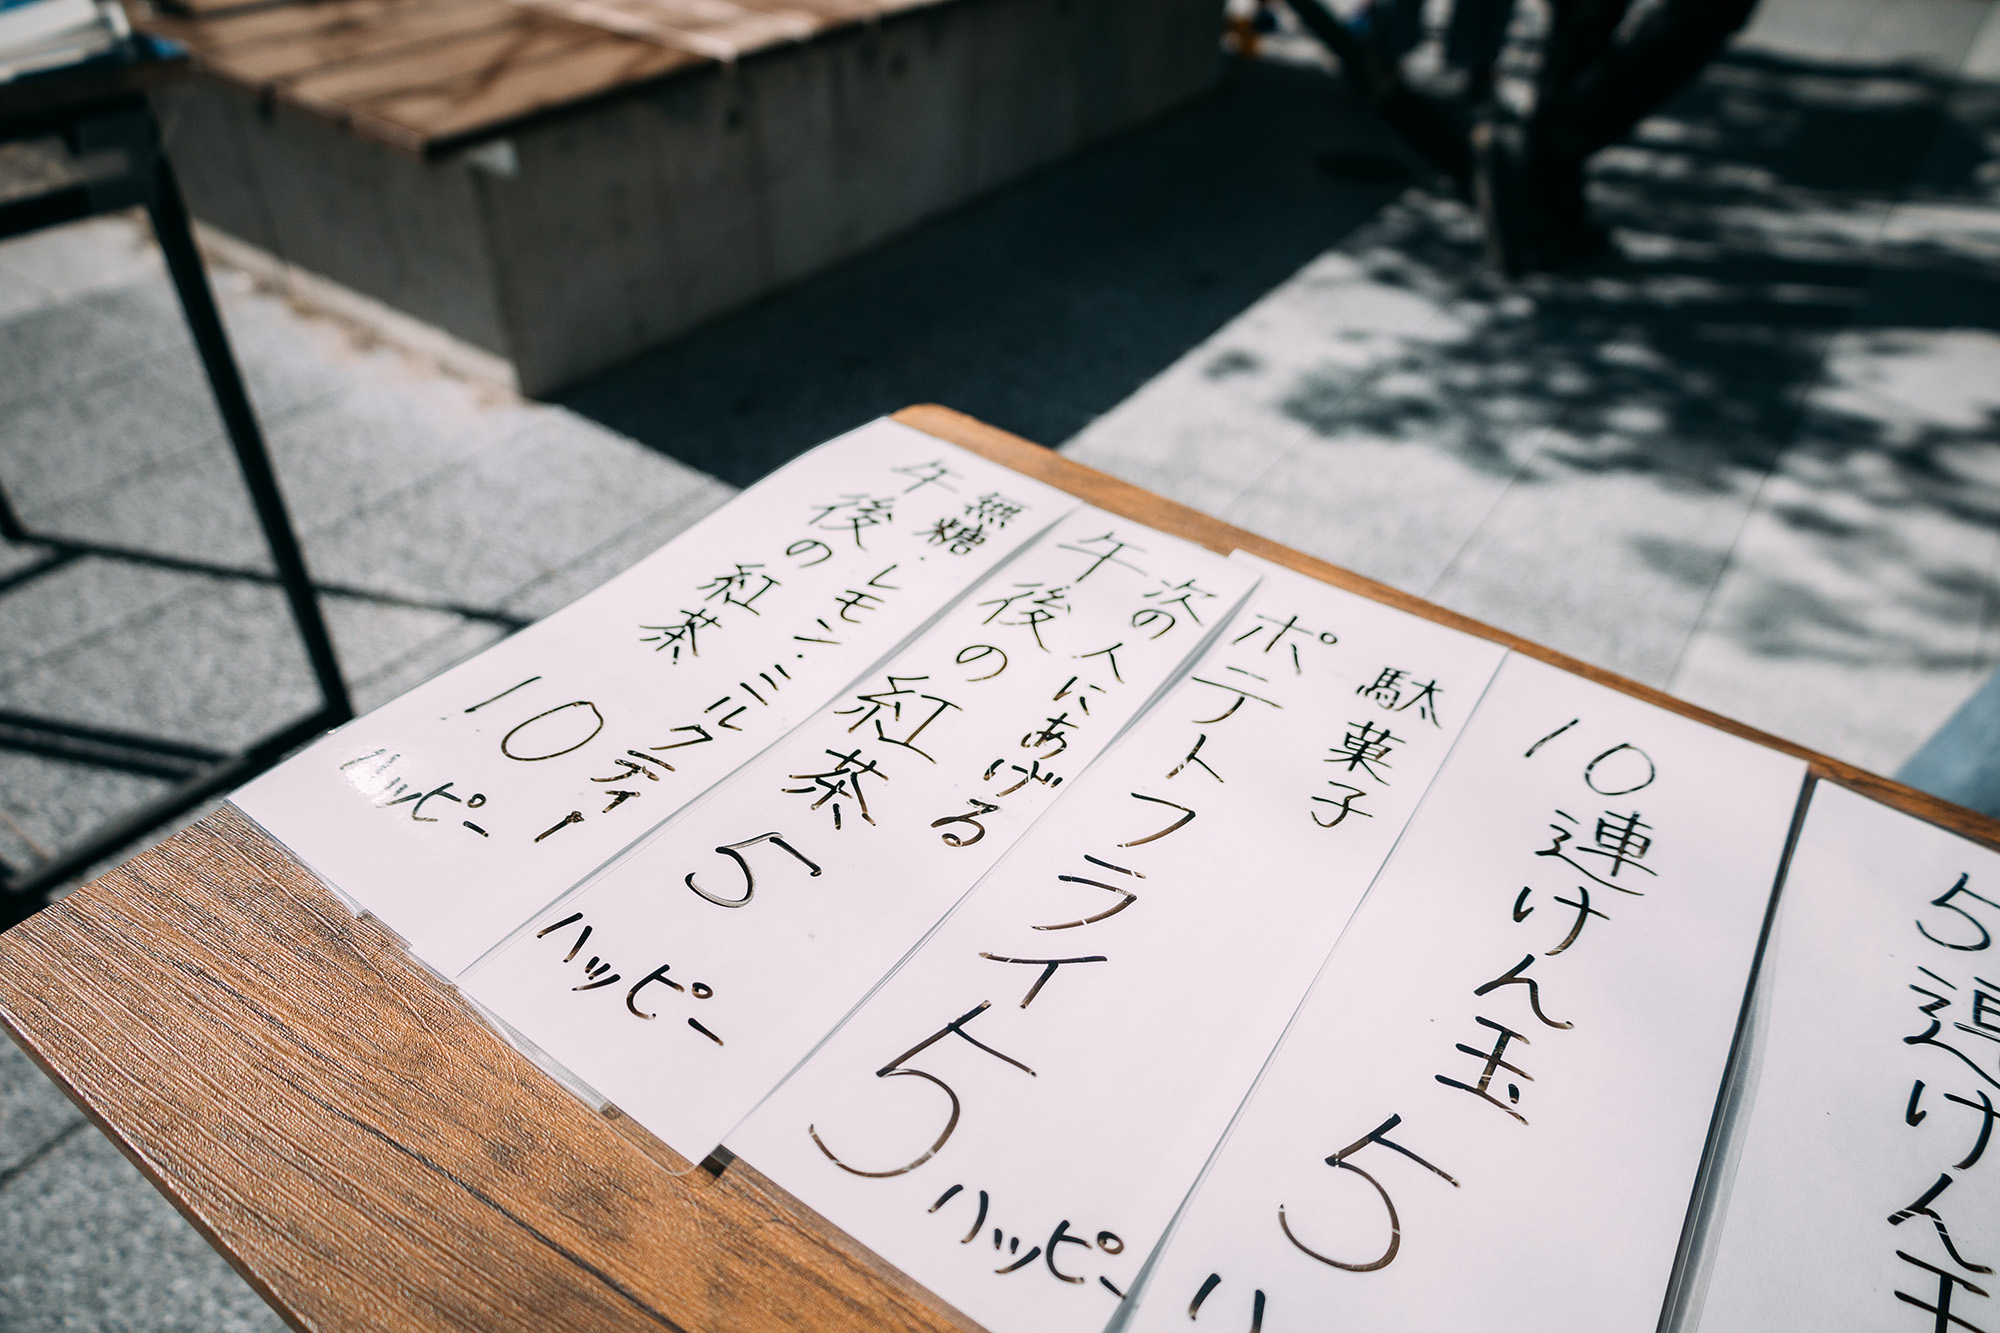 5連けん玉
10連けん玉
5
駄菓子
ポテトフライト
5
ハッピー
次の人にあげる
午後の紅茶
5
ハッピー
無糖・レモン・ミルクティー
午後の紅茶
10
ハッピー